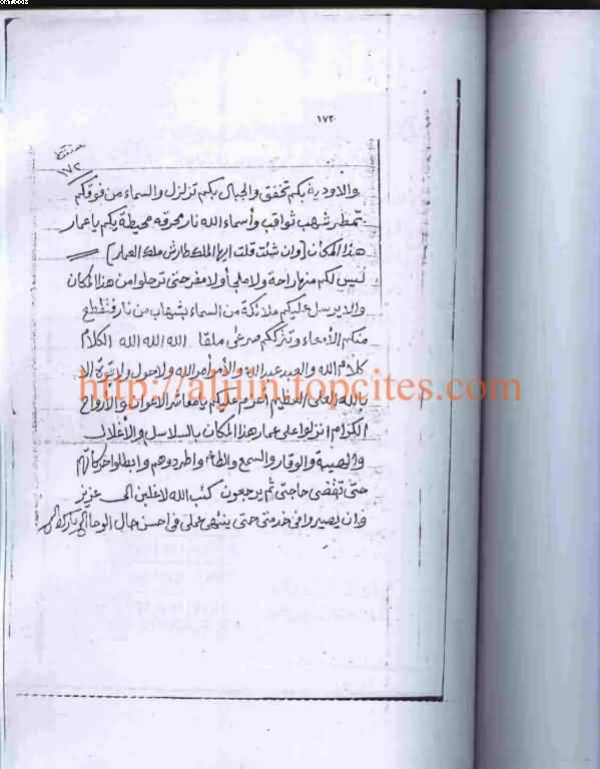 ١٧٣
١٧٢
والاودية بكم تخفق والجبال بكم تزلزل والسماء من فوقكم
تمطر شهب ثواقب وأسماء الله نار محرقه محيطة بكم ياعمار
هذا المكان [وان شئت قلت ايها الملك طارش ملك العمار]
ليس لكم منها راحة ولا ملجأ ولا مفر حتى ترحلوا من هذا المكان
والا يرسل عليكم ملائكة من السماء بشهاب من نار فتقطع
منكم الأمعاء وتترككم صرعى ملقا الله الله الله الكلام
كلام الله والعبد عبد الله والأمر أمر الله ولا حول ولا قوة الا
بالله العلى العظيم اعزم عليكم يا معاشر الاعوان والأرواح
الكرام انزلوا على عمار هذا المكان بالسلاسل والأغلال
والهيبة والوقار والسمع والطاعه واطردوهم وابطلوا حركاتهم
حتى تقضى حاجتى ثم يرجعون كتب الله لاغلبن الى عزيز
وان يصيروا فى خدمتى حتى ينتهى عملى فى احسن حال الوحا
http://aljiin.topcites.com